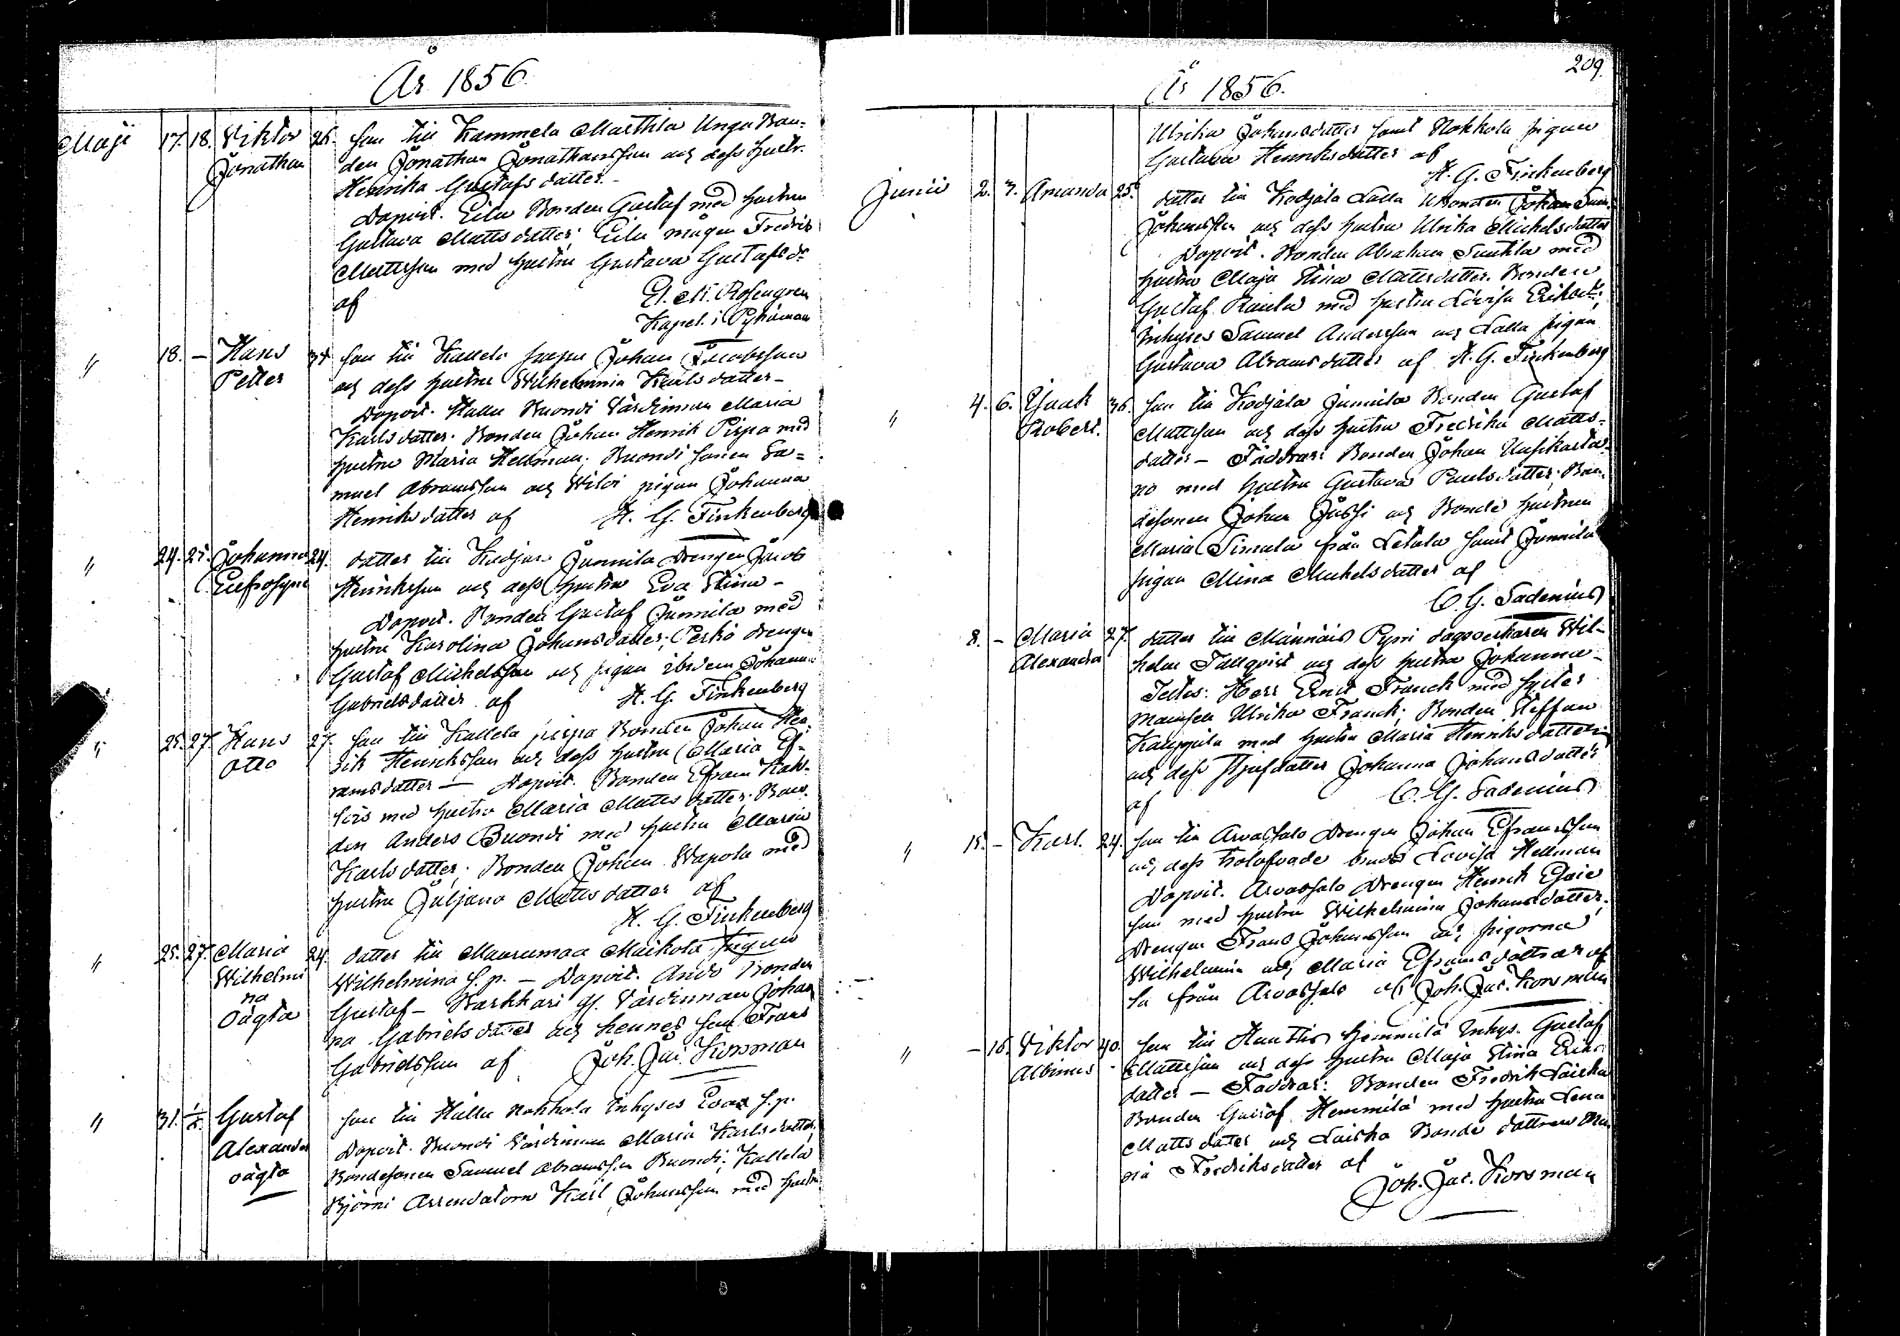 År 1856
Maji 17. 18. Viktor Jonathan 26. Son till Kammela Marthla Unga Bon-
den Jonathan Jonathansson och dess hustr.
Henrika Gustafs datter.-
Dopvit. Eila Bonden Gustaf med hustru
Gustava Matts datter; Eila mågen Fredrik
Mattsson med hustru Gustava Gustafs dr
af
Kapel. i Pyhämaa
" 18. - Hans Petter 34 Son till Kallela Johan Jacobsson
och dess hustru Wilhelmina Karls datter-
Dopvit. Kallu Buondi Värdinnan Maria
Karls datter. Bonden Johan Henrik Pispa med
hustru Maria Hellman. Buondi sonen Sa=
muel Abramsson och pigan Johanna
Henriks datter af H. G. Finkenberg
" 24. 25. Johanna Eufrosyne 24. datter till Junnila Drengen Jacob
Henriksson och dess hustru Eva Stina-
Dopvit. Bonden Gustaf Junnila med
hustru Karolina Johans datter; Perkö drengen
Gustaf Michelsson och pigan ibidem Johanna
Gabriels datter af H. G. Finkenberg
" 25. 27. Hans Otto 27. Son till Kallela pispa Bonden Johan Hen-
rik Henriksson och dess hustru Maria Ef-
rams datter — Dopvit. Bonden Efram
med hustru Maria Matts datter; Bon-
den Anders Buondi med hustru Maria
Karls datter. Bonden Johan Wapola med
hustru Juljana Matts datter af
H. G. Finkenberg
" 25. 27. Maria Wilhelmi na oägta 24. datter till Maurumaa Maikola Pigan
Wilhelmina f.p. - Dopvit. Bonden
Gustaf - Värdinnan Johan
na Gabriels datter och hennes son Frans
Gabrielsson af Joh. Jac. Korsman
" 31. 1/6 Gustaf Alexander oägta Son till Kallu Nokkola Inhyses Evas f.p.
Dopvit. Buondi Värdinnan Maria Karls datter.
Bondesonen Samuel Abramsson Buondi; Kallela
Björni Arrendatorn Karl Johansson med hustru
209.
År 1856.
Ulrika Johansdatter samt Nokkola pigan
Gustava Henriksdatter af
H. G. Finkenberg
Junii 2. 3. Amanda 25. datter till Kodjala Lalla Bonden Johan
Johansson och dess hustru Ulrika Michelsdatter
Dopvit. Bonden Abraham Suutila med
hustru Maja Stina Mattsdatter. Bonden
Gustaf Rauta med hustru Lovisa Eriksdr.
Inhyses Samuel Andersson och Lalla pigan
Gustava Abramsdatter af H. G. Finkenberg
" 4. 6. Isaak Robert. 36. Son till Kodjala Junnila Bonden Gustaf
Mattsson och dess hustru Fredrika Matts-
datter - Faddrar: Bonden Johan Uusikarta-
no med hustru Gustava Paulsdatter. Bon-
desonen Johan Jussi och Bonde hustrun
Maria Simula från Letala samt Junnila
pigan Mina Michelsdatter af
C. G. Sadenius
8. - Maria Alexandra 27. datter till Männäis Pyri dagsverkaren Wil-
helm Tallqvist och dess hustru Johanna-
Testes: Herr Ernst Franck med syster
mamsell Ulrika Franck; Bonden Steffan
Kauppila med hustru Maria Henriksdatter
och dess styfdatter Johanna Johansdatter
af C. G. Sadenius
" 15. - Karl. 24. Son till Arvassalo Drengen Johan Eframsson
och dess trolofvade brud Lovisa Hellman
Dopvit. Arvassalo Drengen Henrik Esaie
son med hustru Wilhelmina Johansdatter.
Drengen Frans Johansson och pigorna
Wilhelmina och Maria Eframs döttrar al
la från Arvassalo af Joh. Jac. Korsman
" - 16. Viktor Albinus 40. Son till Hemmilä Inhys. Gustaf
Mattsson och dess hustru Maja Stina Eriks
datter - Faddrar: Bonden Fredrik Laiska
Bonden Gustaf Hemmilä med hustru Lena
Matts datter och Laiska Bonde dottren
Fredriksdatter af
Joh. Jac. Korsman